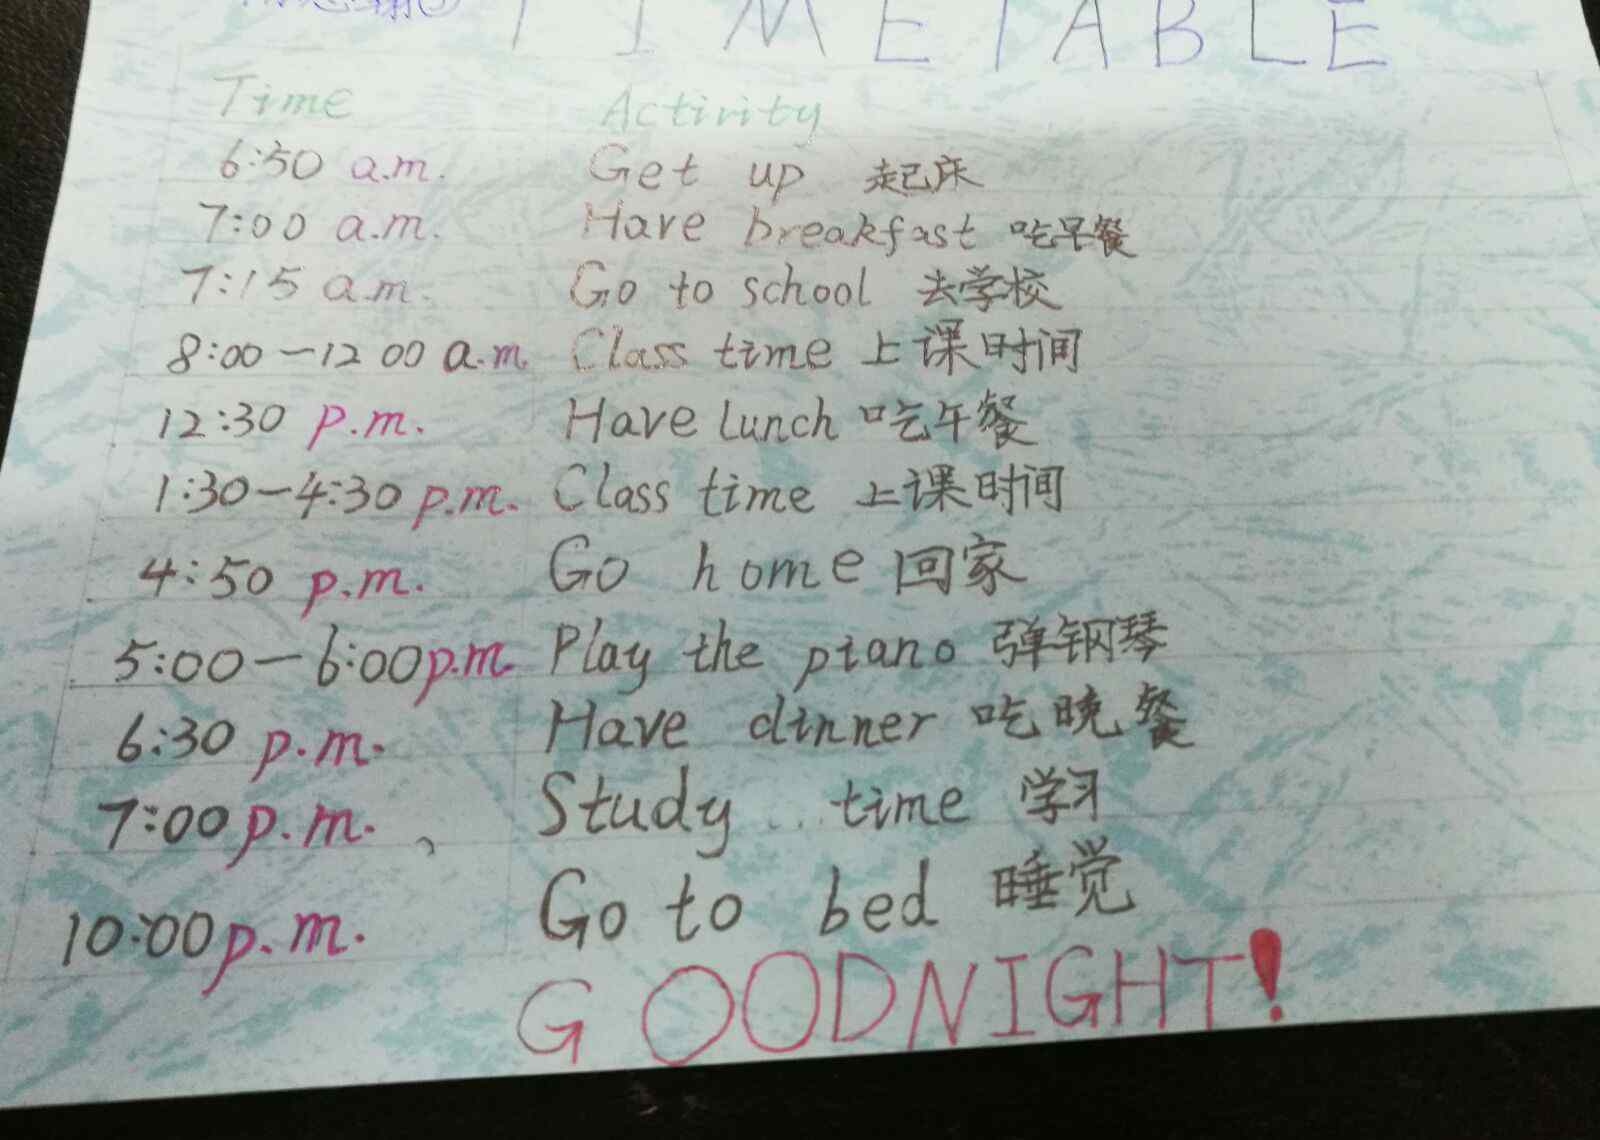 TIMETABLE
Time Activity
6:30 a.m. Get up 起床
7:00 a.m. Have breakfast 吃早餐
7:15 a.m. Go to school 去学校
8:00-12 00 a.m. Class time 上课时间
12:30 p.m. Have lunch 吃午餐
1:30-4:30 p.m. Class time 上课时间
4:50 p.m. Go home 回家
5:00-6:00p.m. Play the piano 弹钢琴
6:30 p.m. Have dinner 吃晚餐
7:00p.m. Study time 学习
10:00p.m. Go to bed 睡觉
GOODNIGHT!